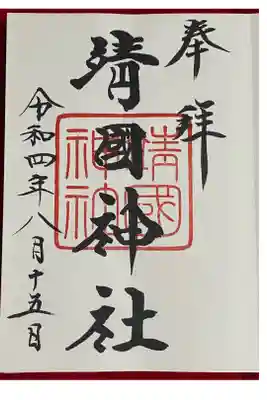 奉拜
靖國神社
靖國神社
令和四年八月十五日